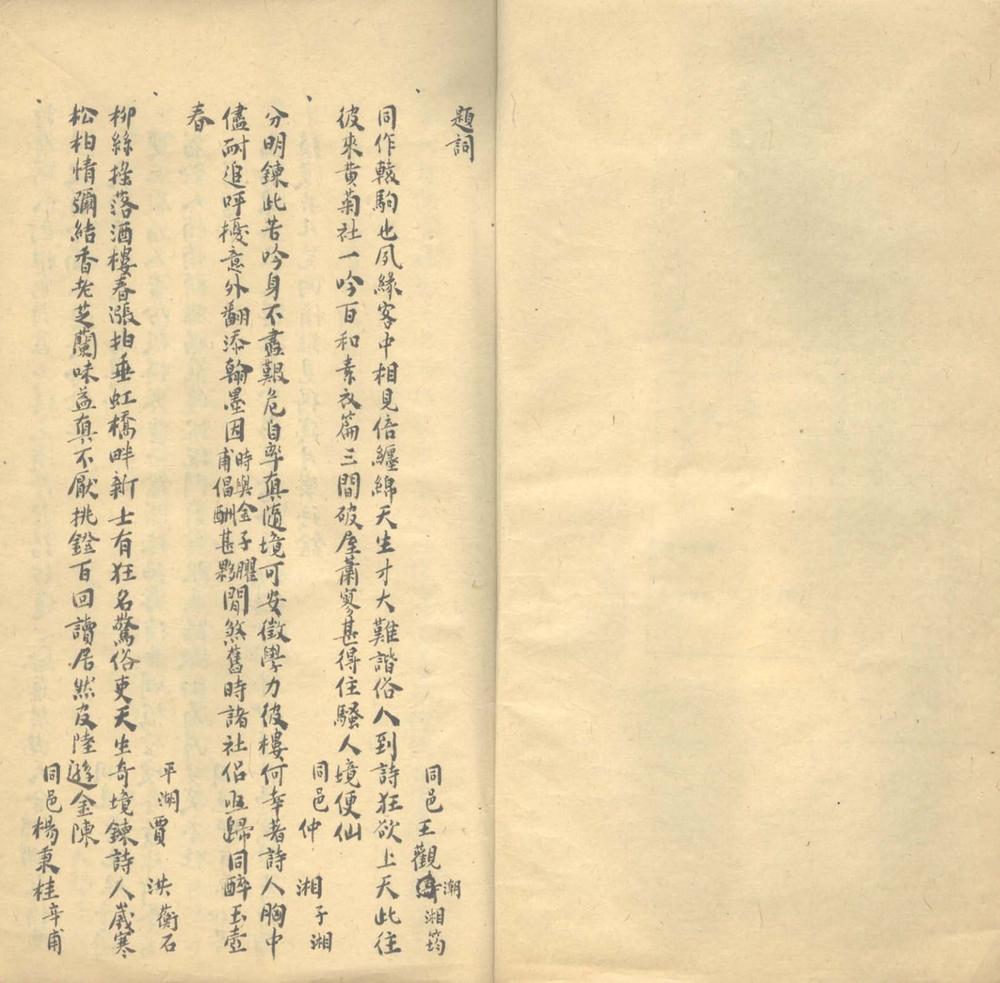 題詞
同邑王觀潮湘筠
同作轅駒也夙緣客中相見倍纏綿天生才大難諧俗人到詩狂欲上天此住
彼來黃菊社一吟百和素衣篇三間破屋蕭寥甚得住騷人境便仙
同邑仲湘子湘
分明鍊此苦吟身不盡艱危自率真隨境可安徵學力彼樓何幸著詩人胸中
儘耐追呼擾意外翻添翰墨因時與金子臞甫倡酬甚夥閒煞舊時諸社侶亟歸同醉玉壺
春
平湖賈洪蘅石
柳絲搖落酒樓春漲拍垂虹橋畔新士有狂名驚俗吏天生奇境鍊詩人歲寒
松柏情彌結香老芝蘭味益真不厭挑鐙百回讀居然皮陸遊金陳
同邑楊秉桂辛甫